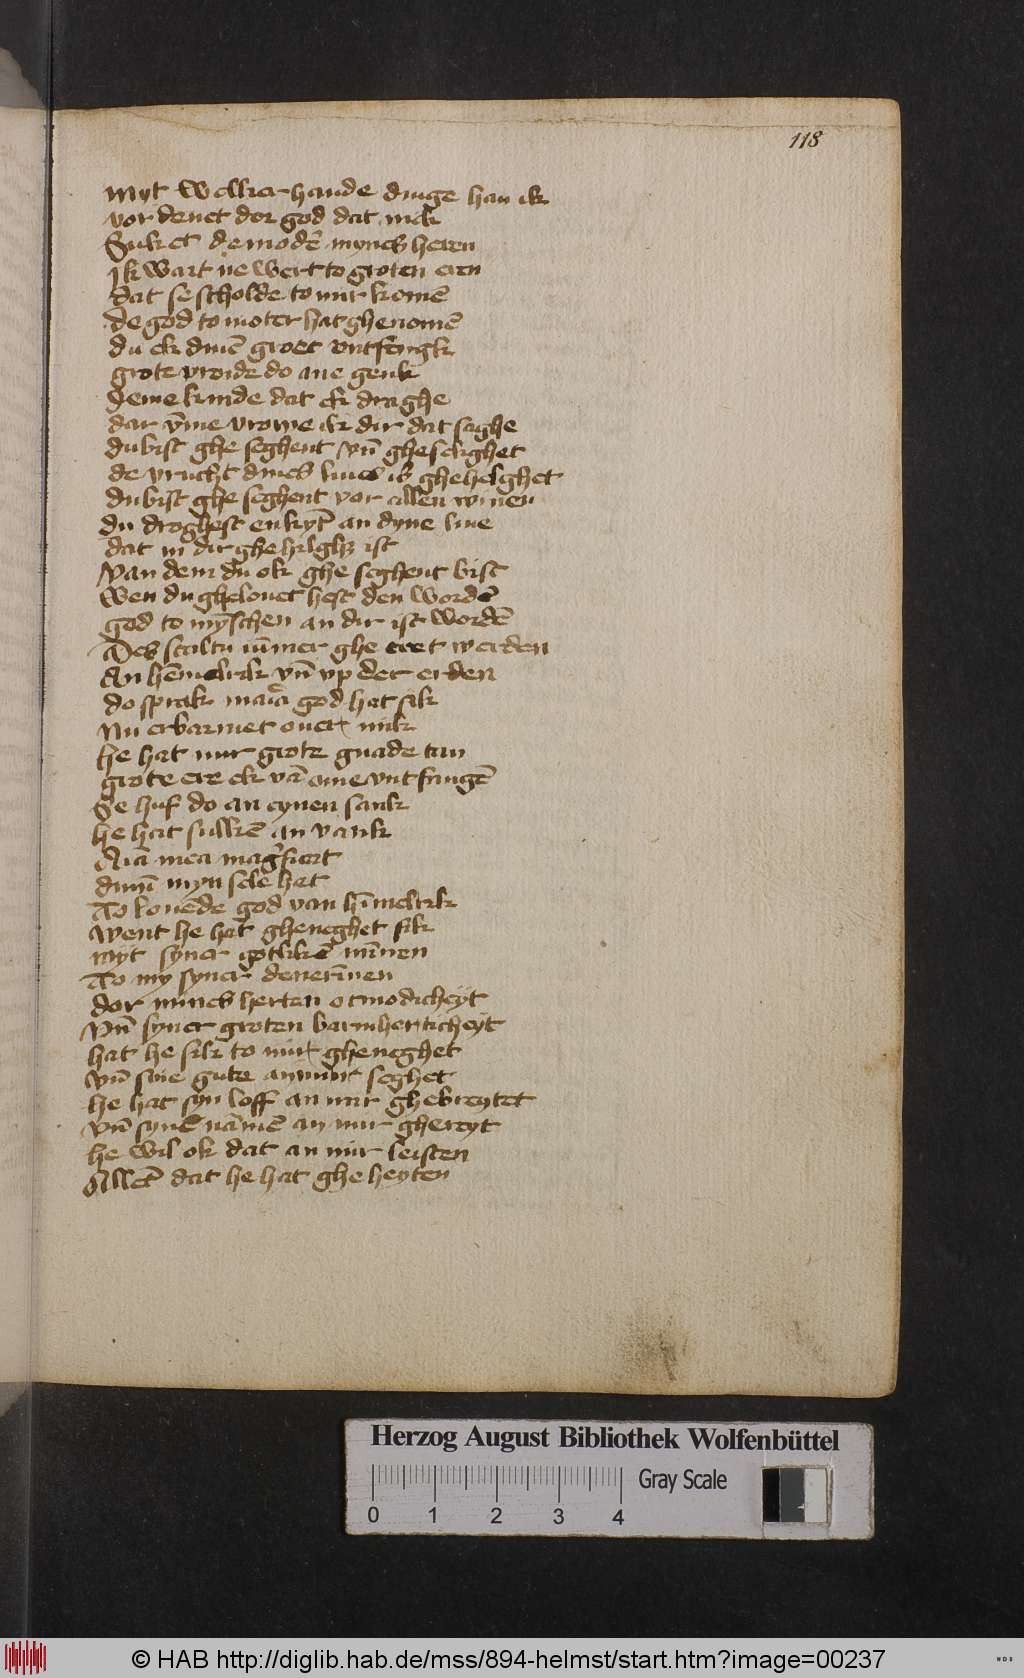 118
myt welkerhande dinge han ik
vor denet dor god dat mek
Suket de modē mynes heren
Ik wart ne wert to groten eren
dat se scholde to mir komē
de god to moter hat ghenomē
du ek dinē groet vntfengk
grote vroide do ane genk
deme kinde dat ek draghe
dar v̄me vrowe ik dir dat saghe
du bist ghe seghent vn̄ gheselighet
de vrucht dines liues is ghehelghet
du bist ghe seghent vor allen wiuen
du droghest en kyt an dyne liue
dat in dir ghe hilght ist
van dem du ok ghe seghent bist
wen du ghelouet hest den wordē
god to mȳschen an dir ist wordē
Des scaltu ium̄er ghe eret werden
An hēmelrik vn̄ vp der erden
do sprak maria god hat sik
Nu erbarmet ouer mik
he hat mir grote gnade tan
grote ere ek vā ome vntfangē
Se huf do an eynen sank
he hat sulkē an vank
Aīa mea magficat
dinn̄ myn sele het
To louēde god van hīmelrik
went he hat gheneghet sik
myt syner gotlikē mīnen
To my syner denerīnen
dor mines herten otmodicheyt
vn̄ syner groten barmherticheyt
hat he sik to mir gheneghet
vn̄ sine gute an mir seghet
he hat syn loff an mir ghebreytet
vn̄ synē nāmē an mir ghereyt
he wil ok dat an mir leisten
Allet dat he hat ghe heyten
Herzog August Bibliothek Wolfenbüttel
0 1 2 3 4
Gray Scale
© HAB http://diglib.hab.de/mss/894-helmst/start.htm?image=00237